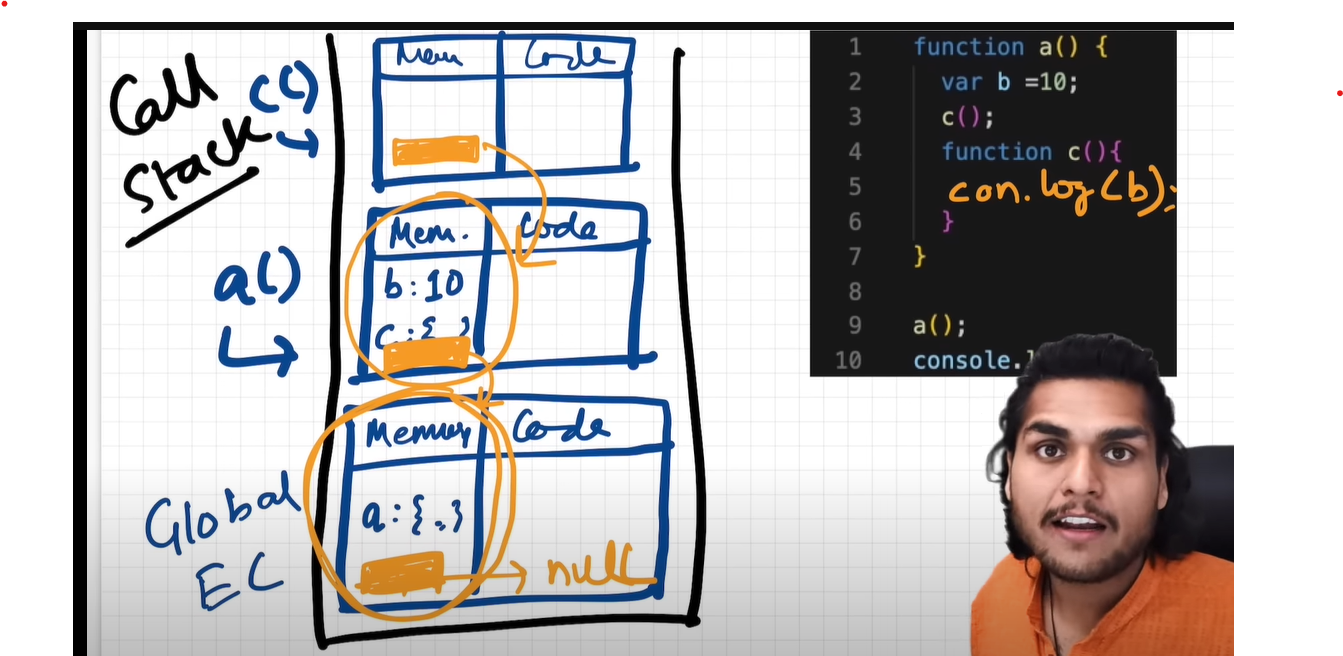 Call
Stack
c()
Mem Code
a()
Mem. Code
b:10
c:{ }
Global
EC
Memory Code
a:{.}
null
1 function a() {
2 var b =10;
3 c();
4 function c(){
5 con.log(b);
6 }
7 }
8
9 a();
10 console.